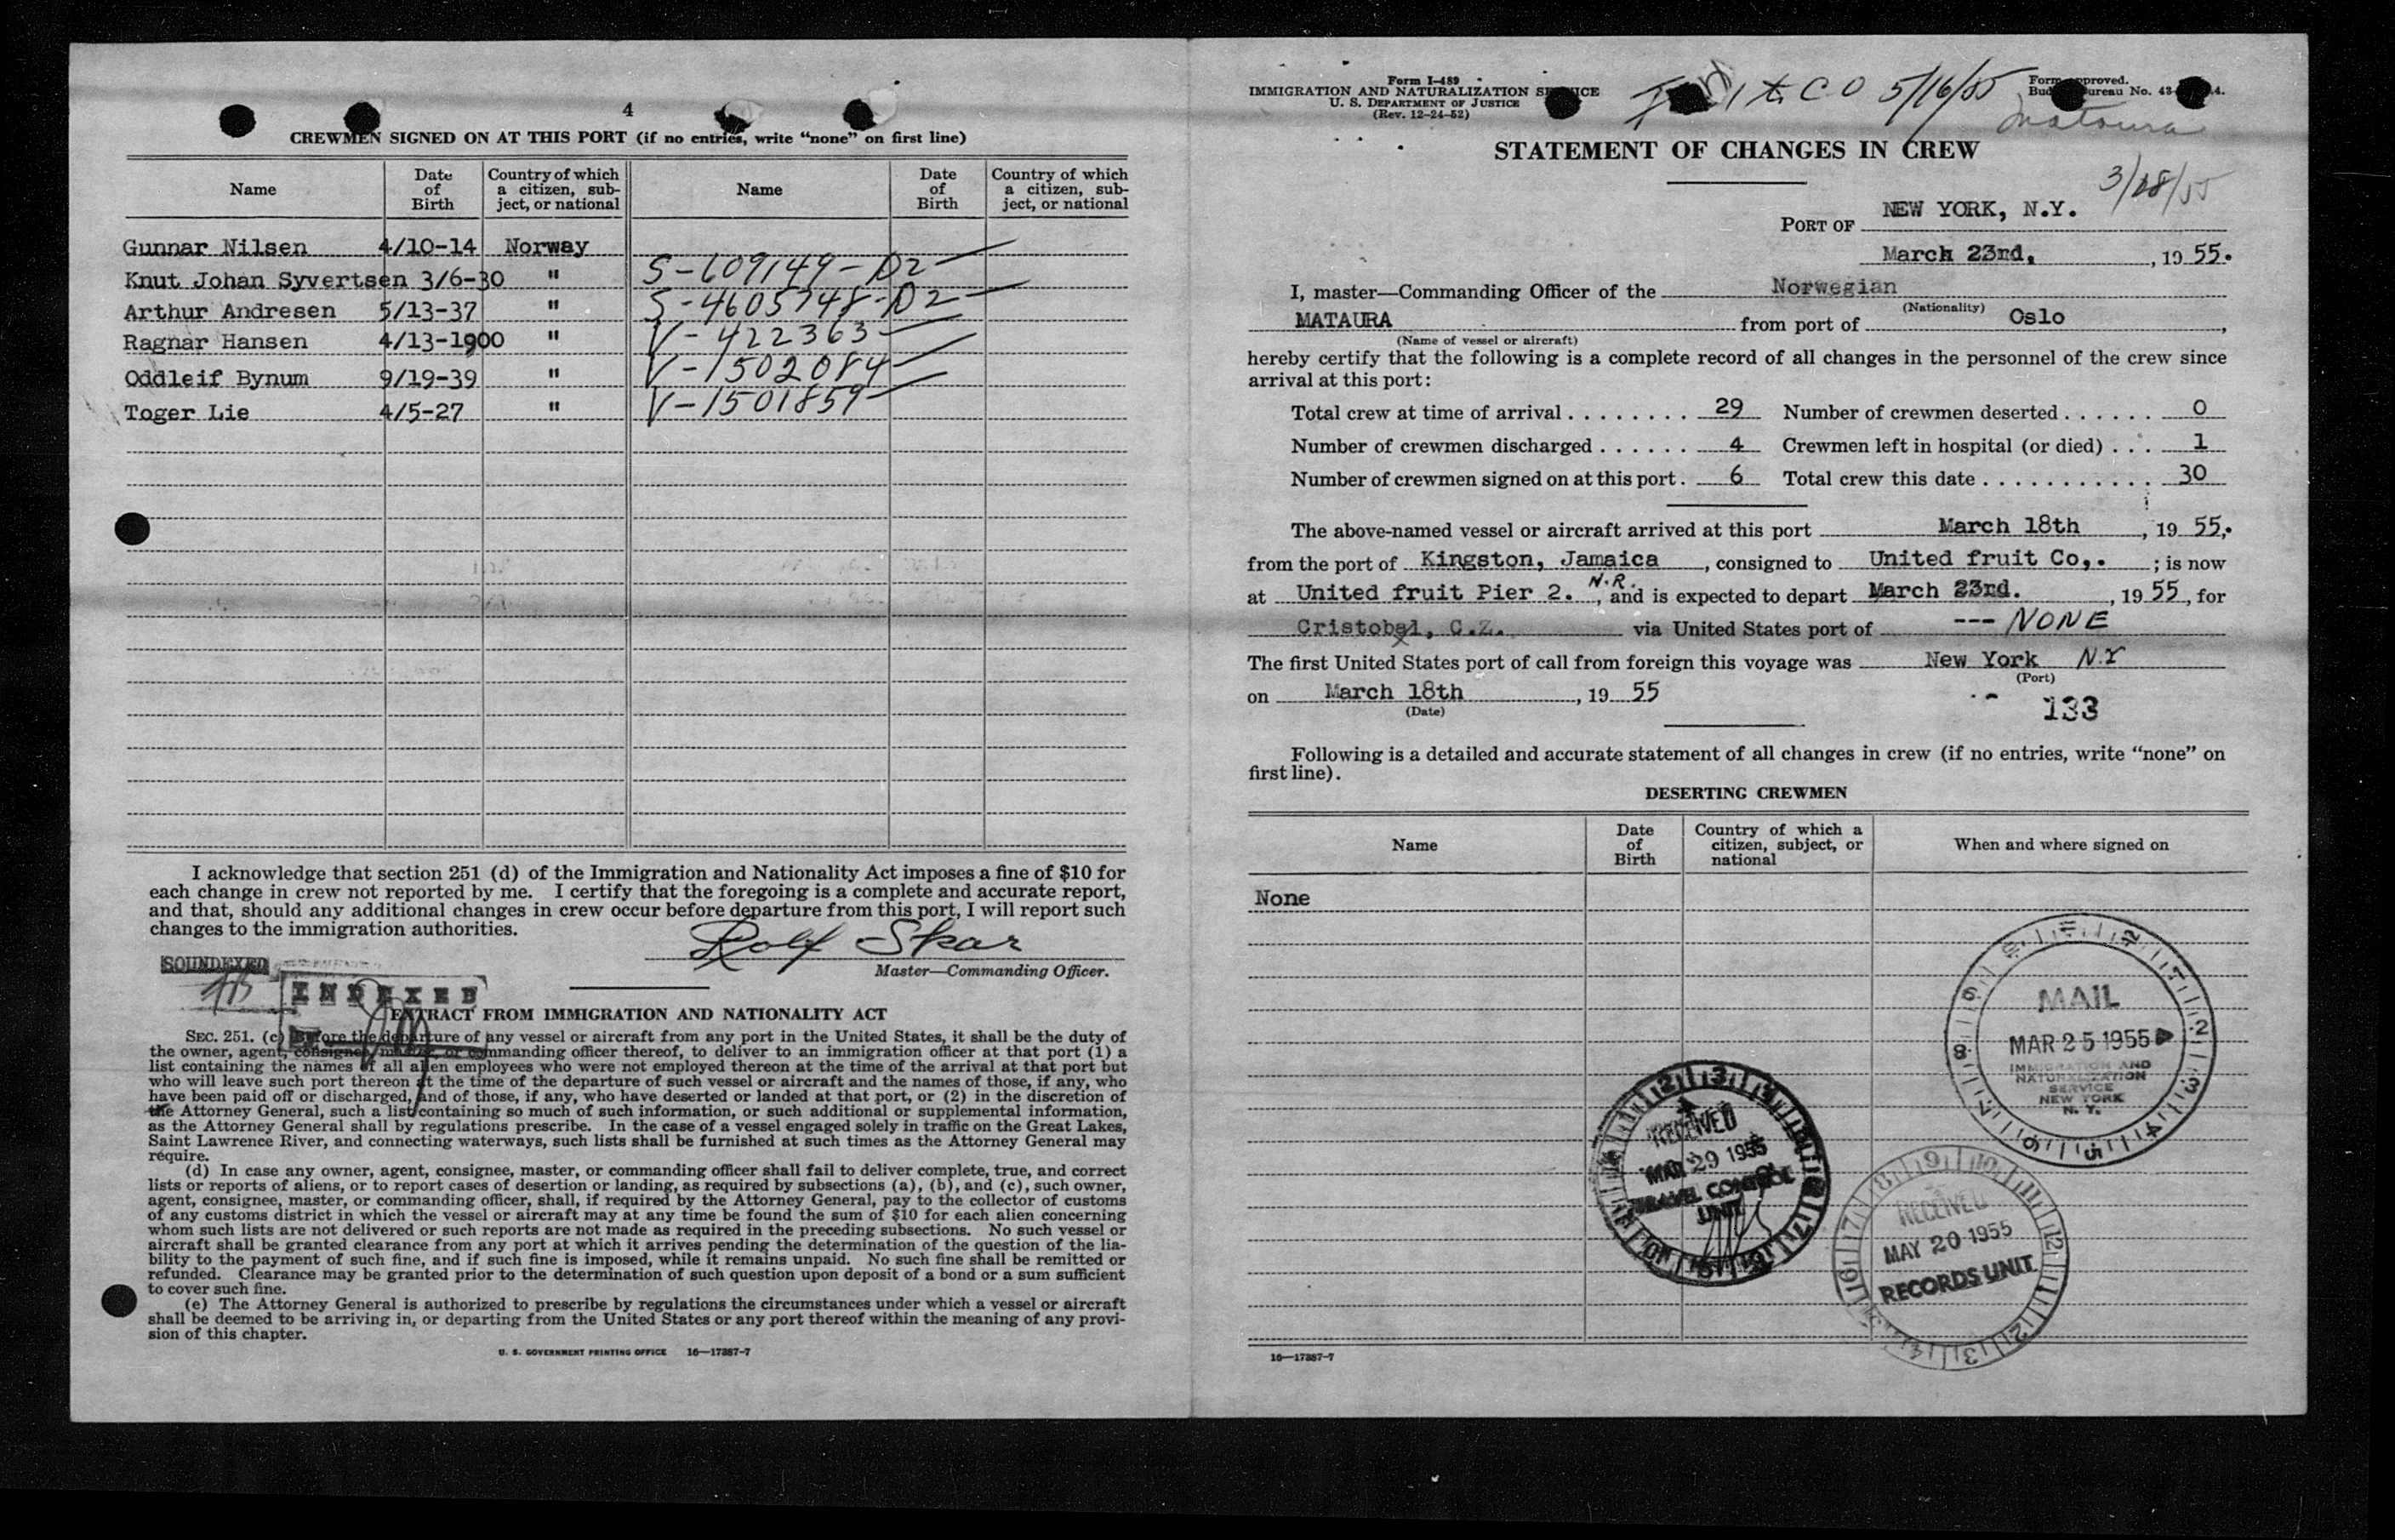 4
CREWMEN SIGNED ON AT THIS PORT (if no entries, write "none" on first line)
Name
Date of Birth
Country of which a citizen, subject, or national
Name
Date of Birth
Country of which a citizen, subject, or national
Gunnar Nilsen 4/10-14 Norway
Knut Johan Syvertsen 3/6-30 " S-609149-D2
Arthur Andresen 5/13-37 " S-4605748-D2
Ragnar Hansen 4/13-1900 " V-422363
Oddleif Bynum 9/19-39 " V-1502084
Toger Lie 4/5-27 " V-1501859
I acknowledge that section 251 (d) of the Immigration and Nationality Act imposes a fine of $10 for
each change in crew not reported by me. I certify that the foregoing is a complete and accurate report,
and that, should any additional changes in crew occur before departure from this port, I will report such
changes to the immigration authorities.
Rolf Skar
Master—Commanding Officer.
SOUNDEXED
INDEXED
EXTRACT FROM IMMIGRATION AND NATIONALITY ACT
SEC. 251. (c) Before the departure of any vessel or aircraft from any port in the United States, it shall be the duty of
the owner, agent, consignee, master, or commanding officer thereof, to deliver to an immigration officer at that port (1) a
list containing the names of all alien employees who were not employed thereon at the time of the arrival at that port but
who will leave such port thereon at the time of the departure of such vessel or aircraft and the names of those, if any, who
have been paid off or discharged, and of those, if any, who have deserted or landed at that port, or (2) in the discretion of
the Attorney General, such a list containing so much of such information, or such additional or supplemental information,
as the Attorney General shall by regulations prescribe. In the case of a vessel engaged solely in traffic on the Great Lakes,
Saint Lawrence River, and connecting waterways, such lists shall be furnished at such times as the Attorney General may
require.
(d) In case any owner, agent, consignee, master, or commanding officer shall fail to deliver complete, true, and correct
lists or reports of aliens, or to report cases of desertion or landing, as required by subsections (a), (b), and (c), such owner,
agent, consignee, master, or commanding officer, shall, if required by the Attorney General, pay to the collector of customs
of any customs district in which the vessel or aircraft may at any time be found the sum of $10 for each alien concerning
whom such lists are not delivered or such reports are not made as required in the preceding subsections. No such vessel or
aircraft shall be granted clearance from any port at which it arrives pending the determination of the question of the lia-
bility to the payment of such fine, and if such fine is imposed, while it remains unpaid. No such fine shall be remitted or
refunded. Clearance may be granted prior to the determination of such question upon deposit of a bond or a sum sufficient
to cover such fine.
(e) The Attorney General is authorized to prescribe by regulations the circumstances under which a vessel or aircraft
shall be deemed to be arriving in, or departing from the United States or any port thereof within the meaning of any provi-
sion of this chapter.
U. S. GOVERNMENT PRINTING OFFICE 16—17387-7
Form I-489
IMMIGRATION AND NATURALIZATION SERVICE
U. S. DEPARTMENT OF JUSTICE
(Rev. 12-24-52)
C O 5/16/55
Form approved.
Budget Bureau No. 43-
Mataura
STATEMENT OF CHANGES IN CREW
3/28/55
PORT OF NEW YORK, N.Y.
March 23rd, , 19 55.
I, master—Commanding Officer of the Norwegian
(Nationality)
MATAURA from port of Oslo ,
(Name of vessel or aircraft)
hereby certify that the following is a complete record of all changes in the personnel of the crew since
arrival at this port:
Total crew at time of arrival . . . . . . . . 29 Number of crewmen deserted . . . . . . 0
Number of crewmen discharged . . . . . . 4 Crewmen left in hospital (or died) . . . 1
Number of crewmen signed on at this port . 6 Total crew this date . . . . . . . . . . . . 30
The above-named vessel or aircraft arrived at this port March 18th , 19 55,.
from the port of Kingston, Jamaica , consigned to United fruit Co,. ; is now
at United fruit Pier 2. N.R. , and is expected to depart March 23rd. , 19 55 , for
Cristobal, C.Z. via United States port of --- NONE
The first United States port of call from foreign this voyage was New York N.Y
(Port)
on March 18th , 19 55
(Date)
133
Following is a detailed and accurate statement of all changes in crew (if no entries, write "none" on
first line).
DESERTING CREWMEN
Name
Date of Birth
Country of which a citizen, subject, or national
When and where signed on
None
MAIL
MAR 25 1955
IMMIGRATION AND
NATURALIZATION
SERVICE
NEW YORK
N. Y.
RECEIVED
MAR 29 1955
TRAVEL CONTROL
UNIT
RECEIVED
MAY 20 1955
RECORDS UNIT
16—17387-7